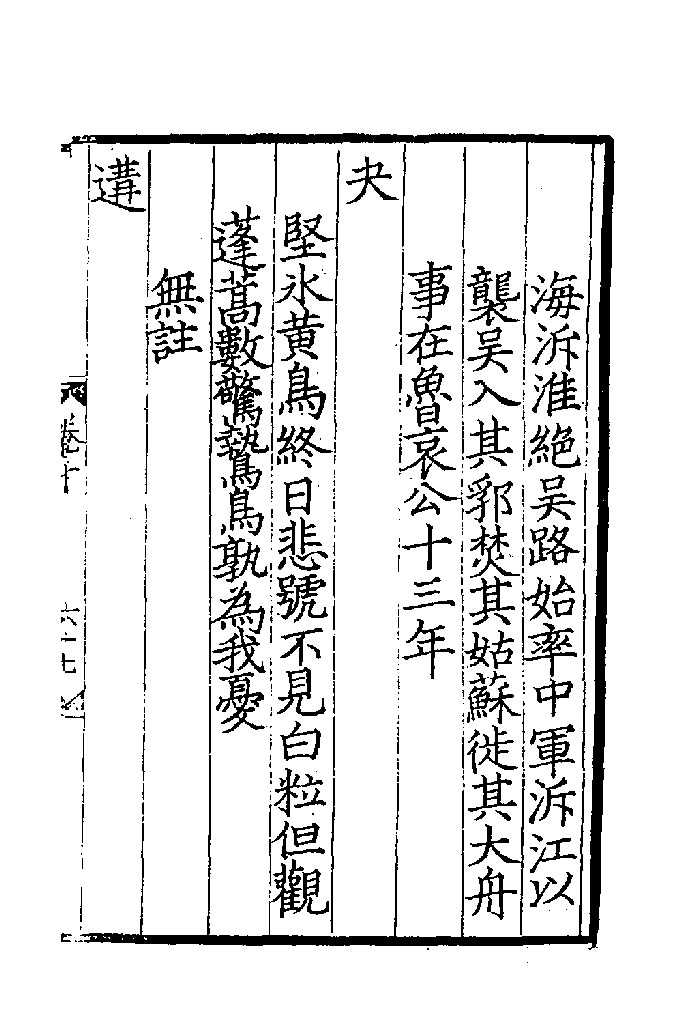 海泝淮絶吳路始率中軍泝江以
襲吳入其郛焚其姑蘇徙其大舟
事在魯哀公十三年
夬
堅氷黄鳥終日悲號不見白粒但觀
蓬蒿數驚鷙鳥孰為我憂
無註
遘
卷十
六十七